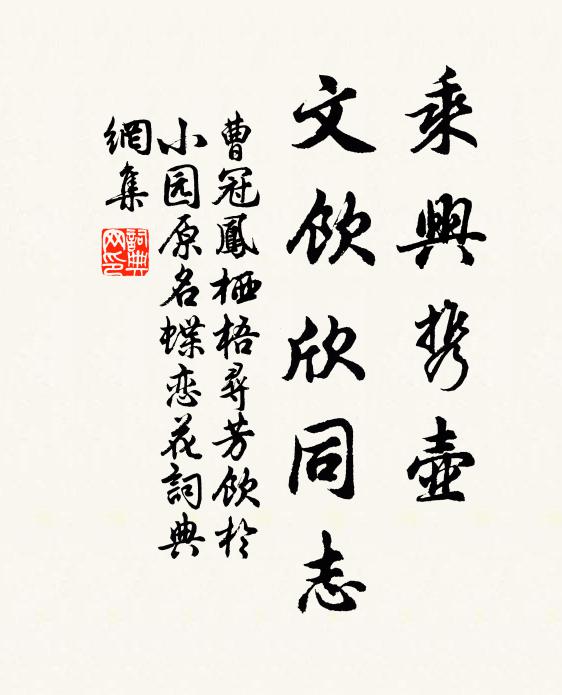 乘興携壺
文飲欣同志
曹冠鳳栖梧尋芳飲於
小园原名蝶恋花詞典
網集
詞典網印